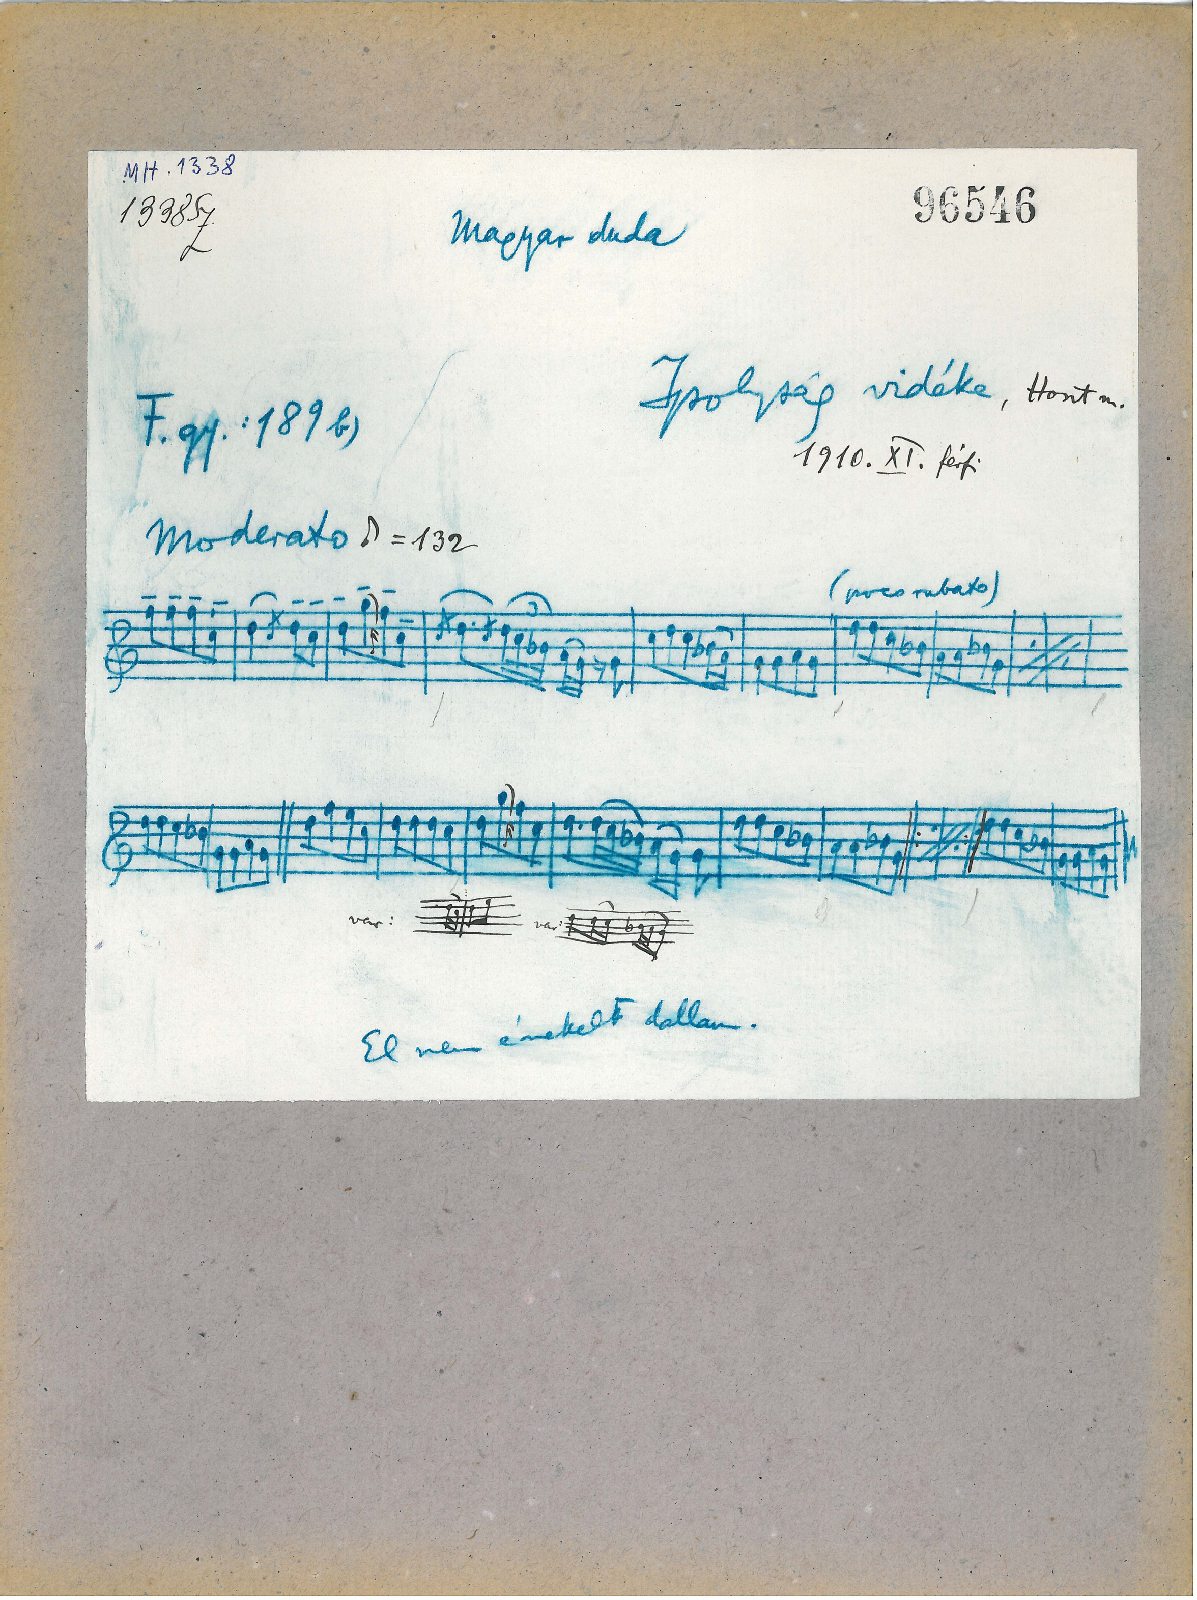 MH. 1338
96546
Magyar duda
Ipolyság vidéke, Hont m.
F. gy.: 189 b)
1910. XI. férfi
Moderato ♪ = 132
(poco rubato)
3
var: var:
El nem énekelt dallam.